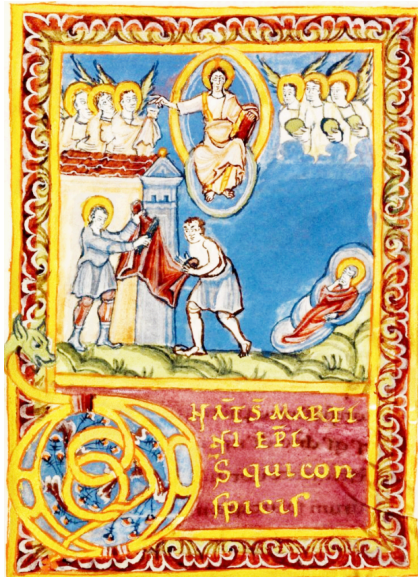 NAT̄ S̄ MARTI
NI EP̄I
S̄ qui con
spicis